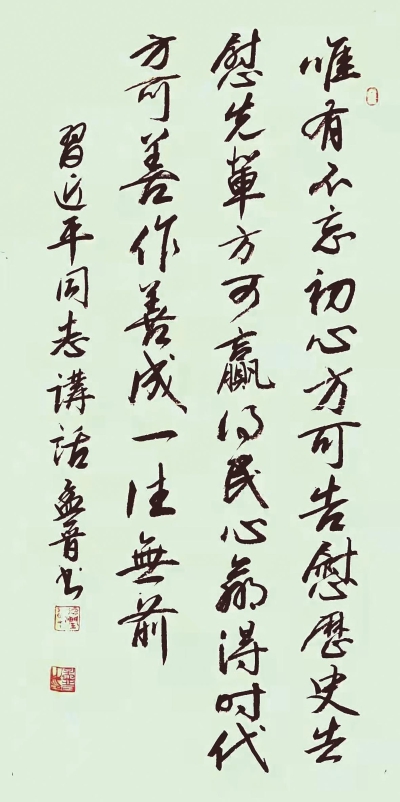 唯有不忘初心方可告慰歷史告
慰先輩方可贏得民心贏得时代
方可善作善成一往無前
習近平同志講話孟晋书